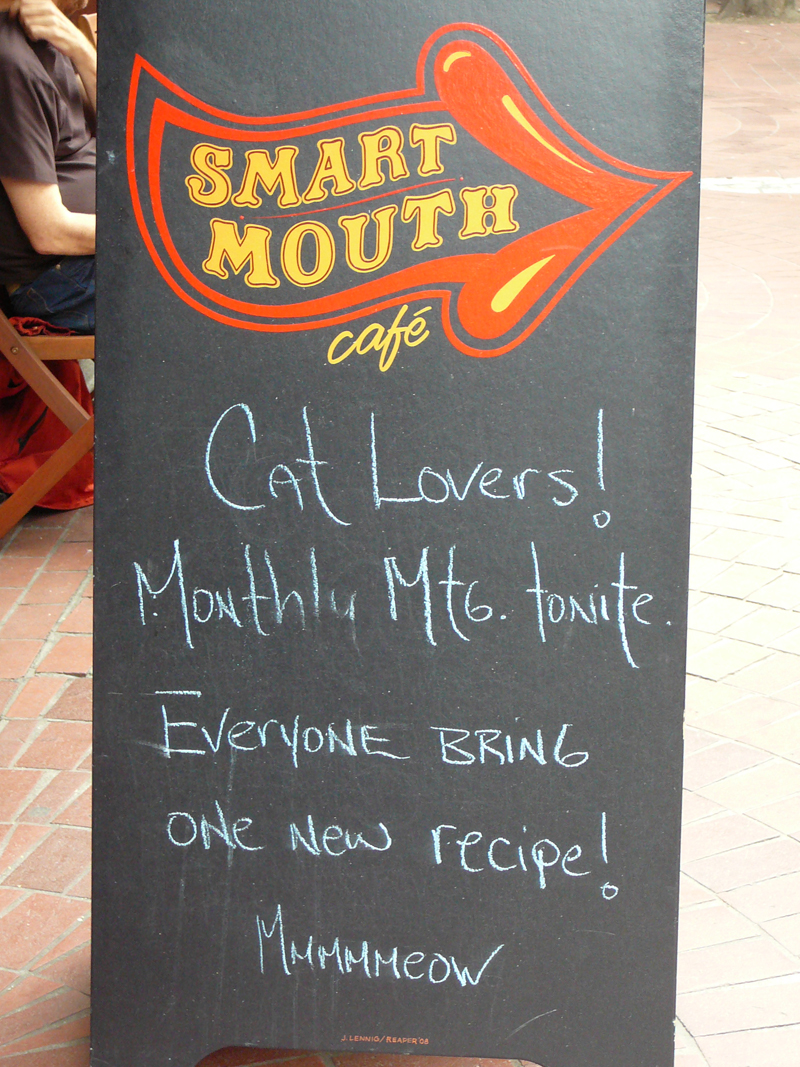 SMART
MOUTH
café
Cat Lovers!
Monthly Mtg. tonite.
Everyone BRING
one new recipe!
Mmmmmeow
J. LENNIG/REAPER '08